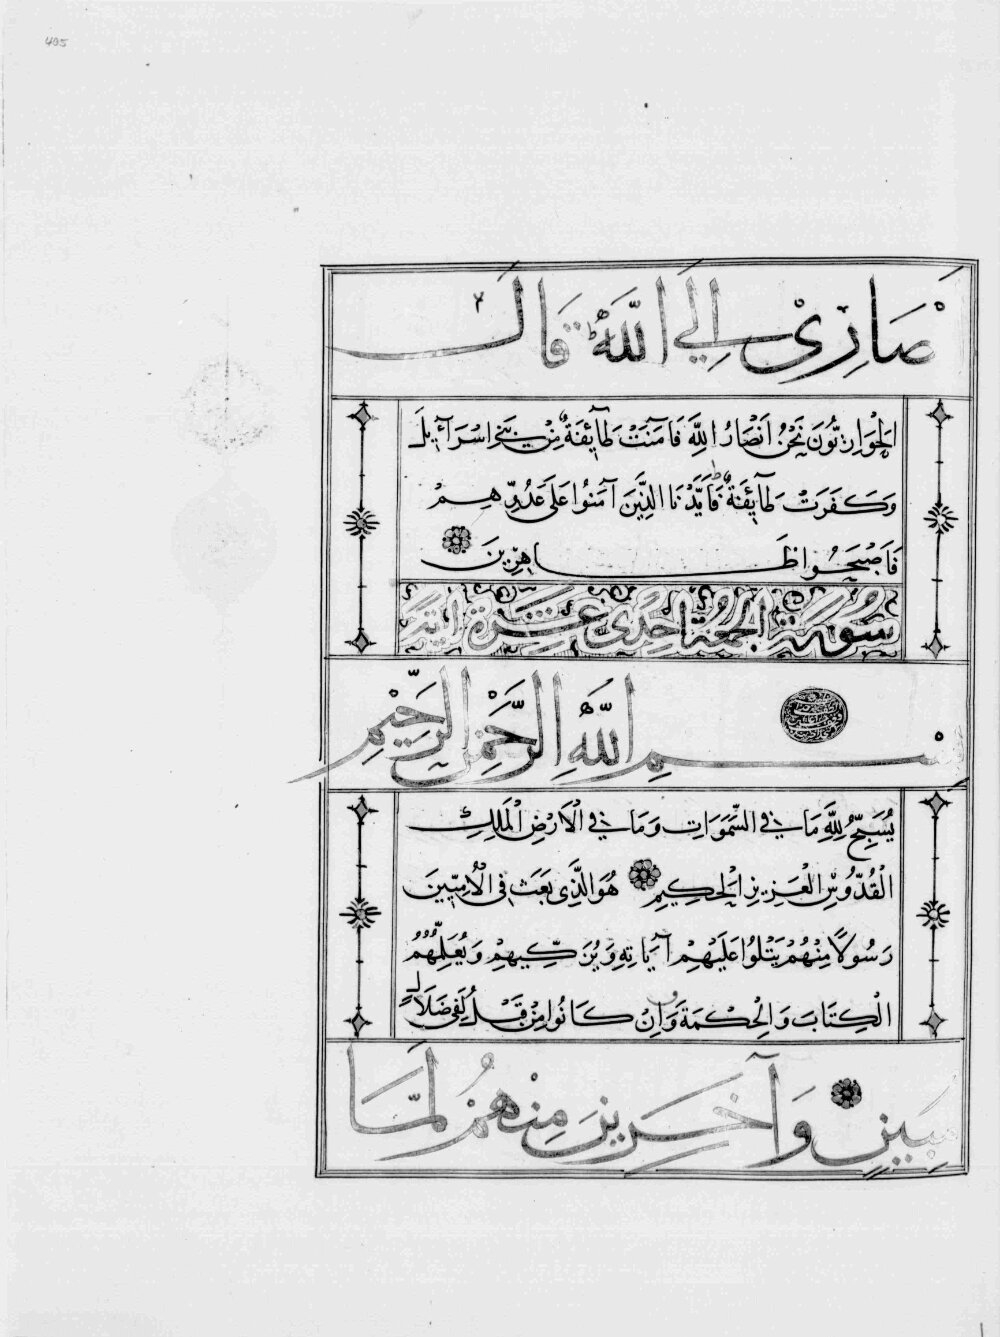 405
صَارِي إِلَي اللَّهِ قَالَ
الْحَوَارِيُّونَ نَحْنُ أَنْصَارُ اللَّهِ فَآمَنَتْ طَآئِفَةٌ مِنْ بَنِي اسْرَآئِيلَ
وَكَفَرَتْ طَآئِفَةٌ فَأَيَّدْنَا الَّذِينَ آمَنُوا عَلَى عَدُوِّهِمْ
فَأَصْبَحُوا ظَاهِرِينَ
سُورَةُ الْجُمُعَةِ احْدَى عَشْرَةَ ايَةً
بِسْمِ اللَّهِ الرَّحْمَنِ الرَّحِيمِ
يُسَبِّحُ لِلَّهِ مَا فِي السَّمَوَاتِ وَمَا فِي الْأَرْضِ الْمَلِكِ
الْقُدُّوسِ الْعَزِيزِ الْحَكِيمِ هُوَ الَّذِي بَعَثَ فِي الْأُمِّيِّينَ
رَسُولًا مِنْهُمْ يَتْلُوا عَلَيْهِمْ آيَاتِهِ وَيُزَكِّيهِمْ وَيُعَلِّمُهُمُ
الْكِتَابَ وَالْحِكْمَةَ وَإِنْ كَانُوا مِنْ قَبْلُ لَفِي ضَلَالٍ
مُبِينٍ وَآخَرِينَ مِنْهُمْ لَمَّا